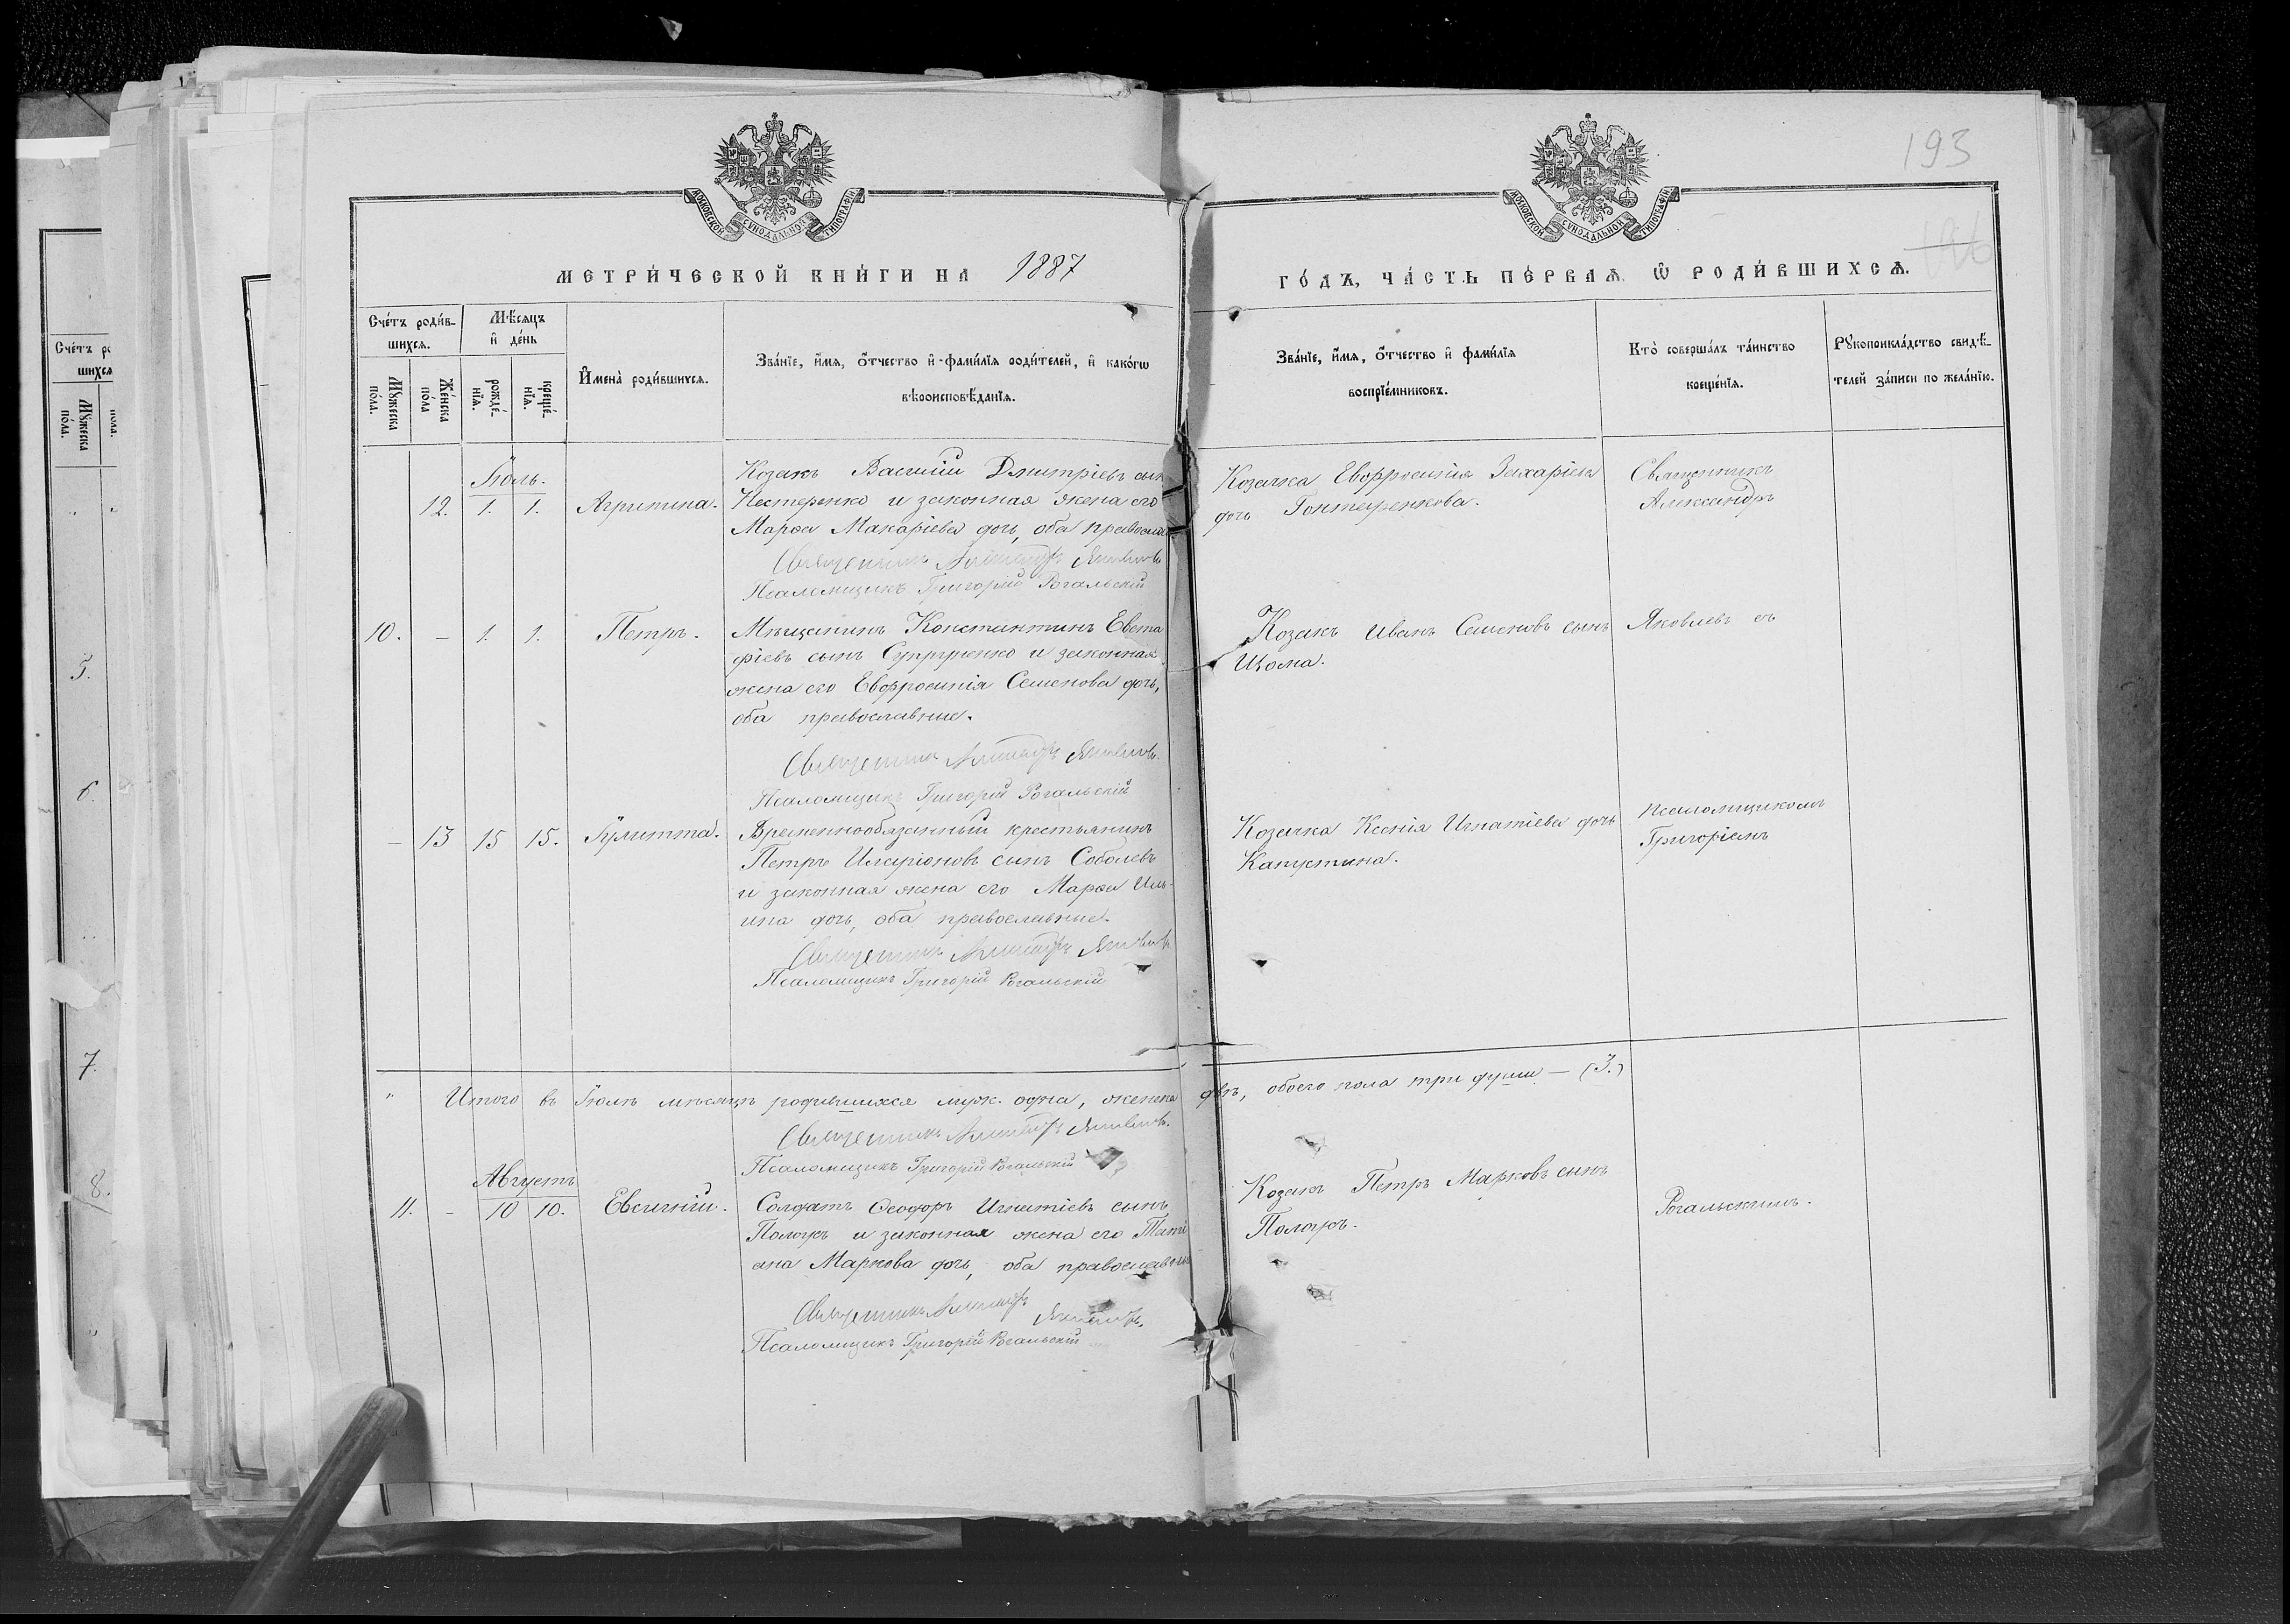 193
МОСКОВСКОЙ СУНОДАЛЬНОЙ ТИПОГРАФІИ
МОСКОВСКОЙ СУНОДАЛЬНОЙ ТИПОГРАФІИ
МЕТРИ́ЧЕСКОЙ КНИ́ГИ НА 1887
ГО́ДЪ, ЧА́СТЬ ПЕ́РВАѦ, Ѡ҆ РОДИ́ВШИХСѦ.
Сче́тъ роди́в-
шихсѧ.
Мѣ́сѧцъ
и҆ де́нь
Мꙋ́жеска
по́ла.
Же́нска
по́ла
рожде́-
нїѧ.
креще́-
нїѧ.
И҆мена̀ роди́вшихсѧ.
Зва́нїе, и҆́мѧ, ѻ҆́тчество и҆ фами́лїѧ роди́телей, и҆ како́гѡ
вѣроисповѣ́данїѧ.
Зва́нїе, и҆́мѧ, ѻ҆́тчество и҆ фами́лїѧ
воспрїе́мниковъ.
Кто̀ соверша́лъ та́инство
креще́нїѧ.
Рꙋкоприкла́дство свидѣ́-
телей за́писи по жела́нїю.
Іюль.
12. 1. 1. Агрипина.
Козакъ Василій Дмитріевъ сын
Нестеренко и законная жена его
Марѳа Макаріева дочь, оба православ
Священникъ Александръ Яковлевъ
Псаломщикъ Григорій Рогальскій
Козачка Евфросинія Захаріева
дочь Гонтаренкова.
Священникъ
Александръ
10. – 1. 1. Петръ.
Мѣщанинъ Константинъ Евста
фіевъ сынъ Супруненко и законная
жена его Евфросинія Семенова дочь,
оба православные.
Священникъ Александръ Яковлевъ.
Псаломщикъ Григорій Рогальскій
Козакъ Иванъ Семеновъ сынъ
Цюма.
Яковлевъ съ
– 13 15 15. Іулитта.
Временнообязанный крестьянинъ
Петръ Иларіоновъ сынъ Соболевъ
и законная жена его Марѳа Иль-
ина дочь, оба православные.
Священникъ Александръ Яковлевъ
Псаломщикъ Григорій Рогальскій
Козачка Ксенія Игнатіева дочь
Капустина.
псаломщикомъ
Григоріемъ
" Итого въ Іюлѣ мѣсяцѣ родившихся муж. одна, женска двѣ, обоего пола три души — (3.)
Священникъ Александръ Яковлевъ.
Псаломщикъ Григорій Рогальскій
Августъ
11. – 10 10. Евсигній.
Солдатъ Ѳеодоръ Игнатіевъ сынъ
Полоузъ и законная жена его Тати
ана Маркова дочь, оба православны
Священникъ Александръ Яковлевъ.
Псаломщикъ Григорій Рогальскій
Козакъ Петръ Марковъ сынъ
Рогальскимъ.
Сче́тъ ро
шихсѧ
Мꙋ́жеска
по́ла.
5.
6.
7.
8.